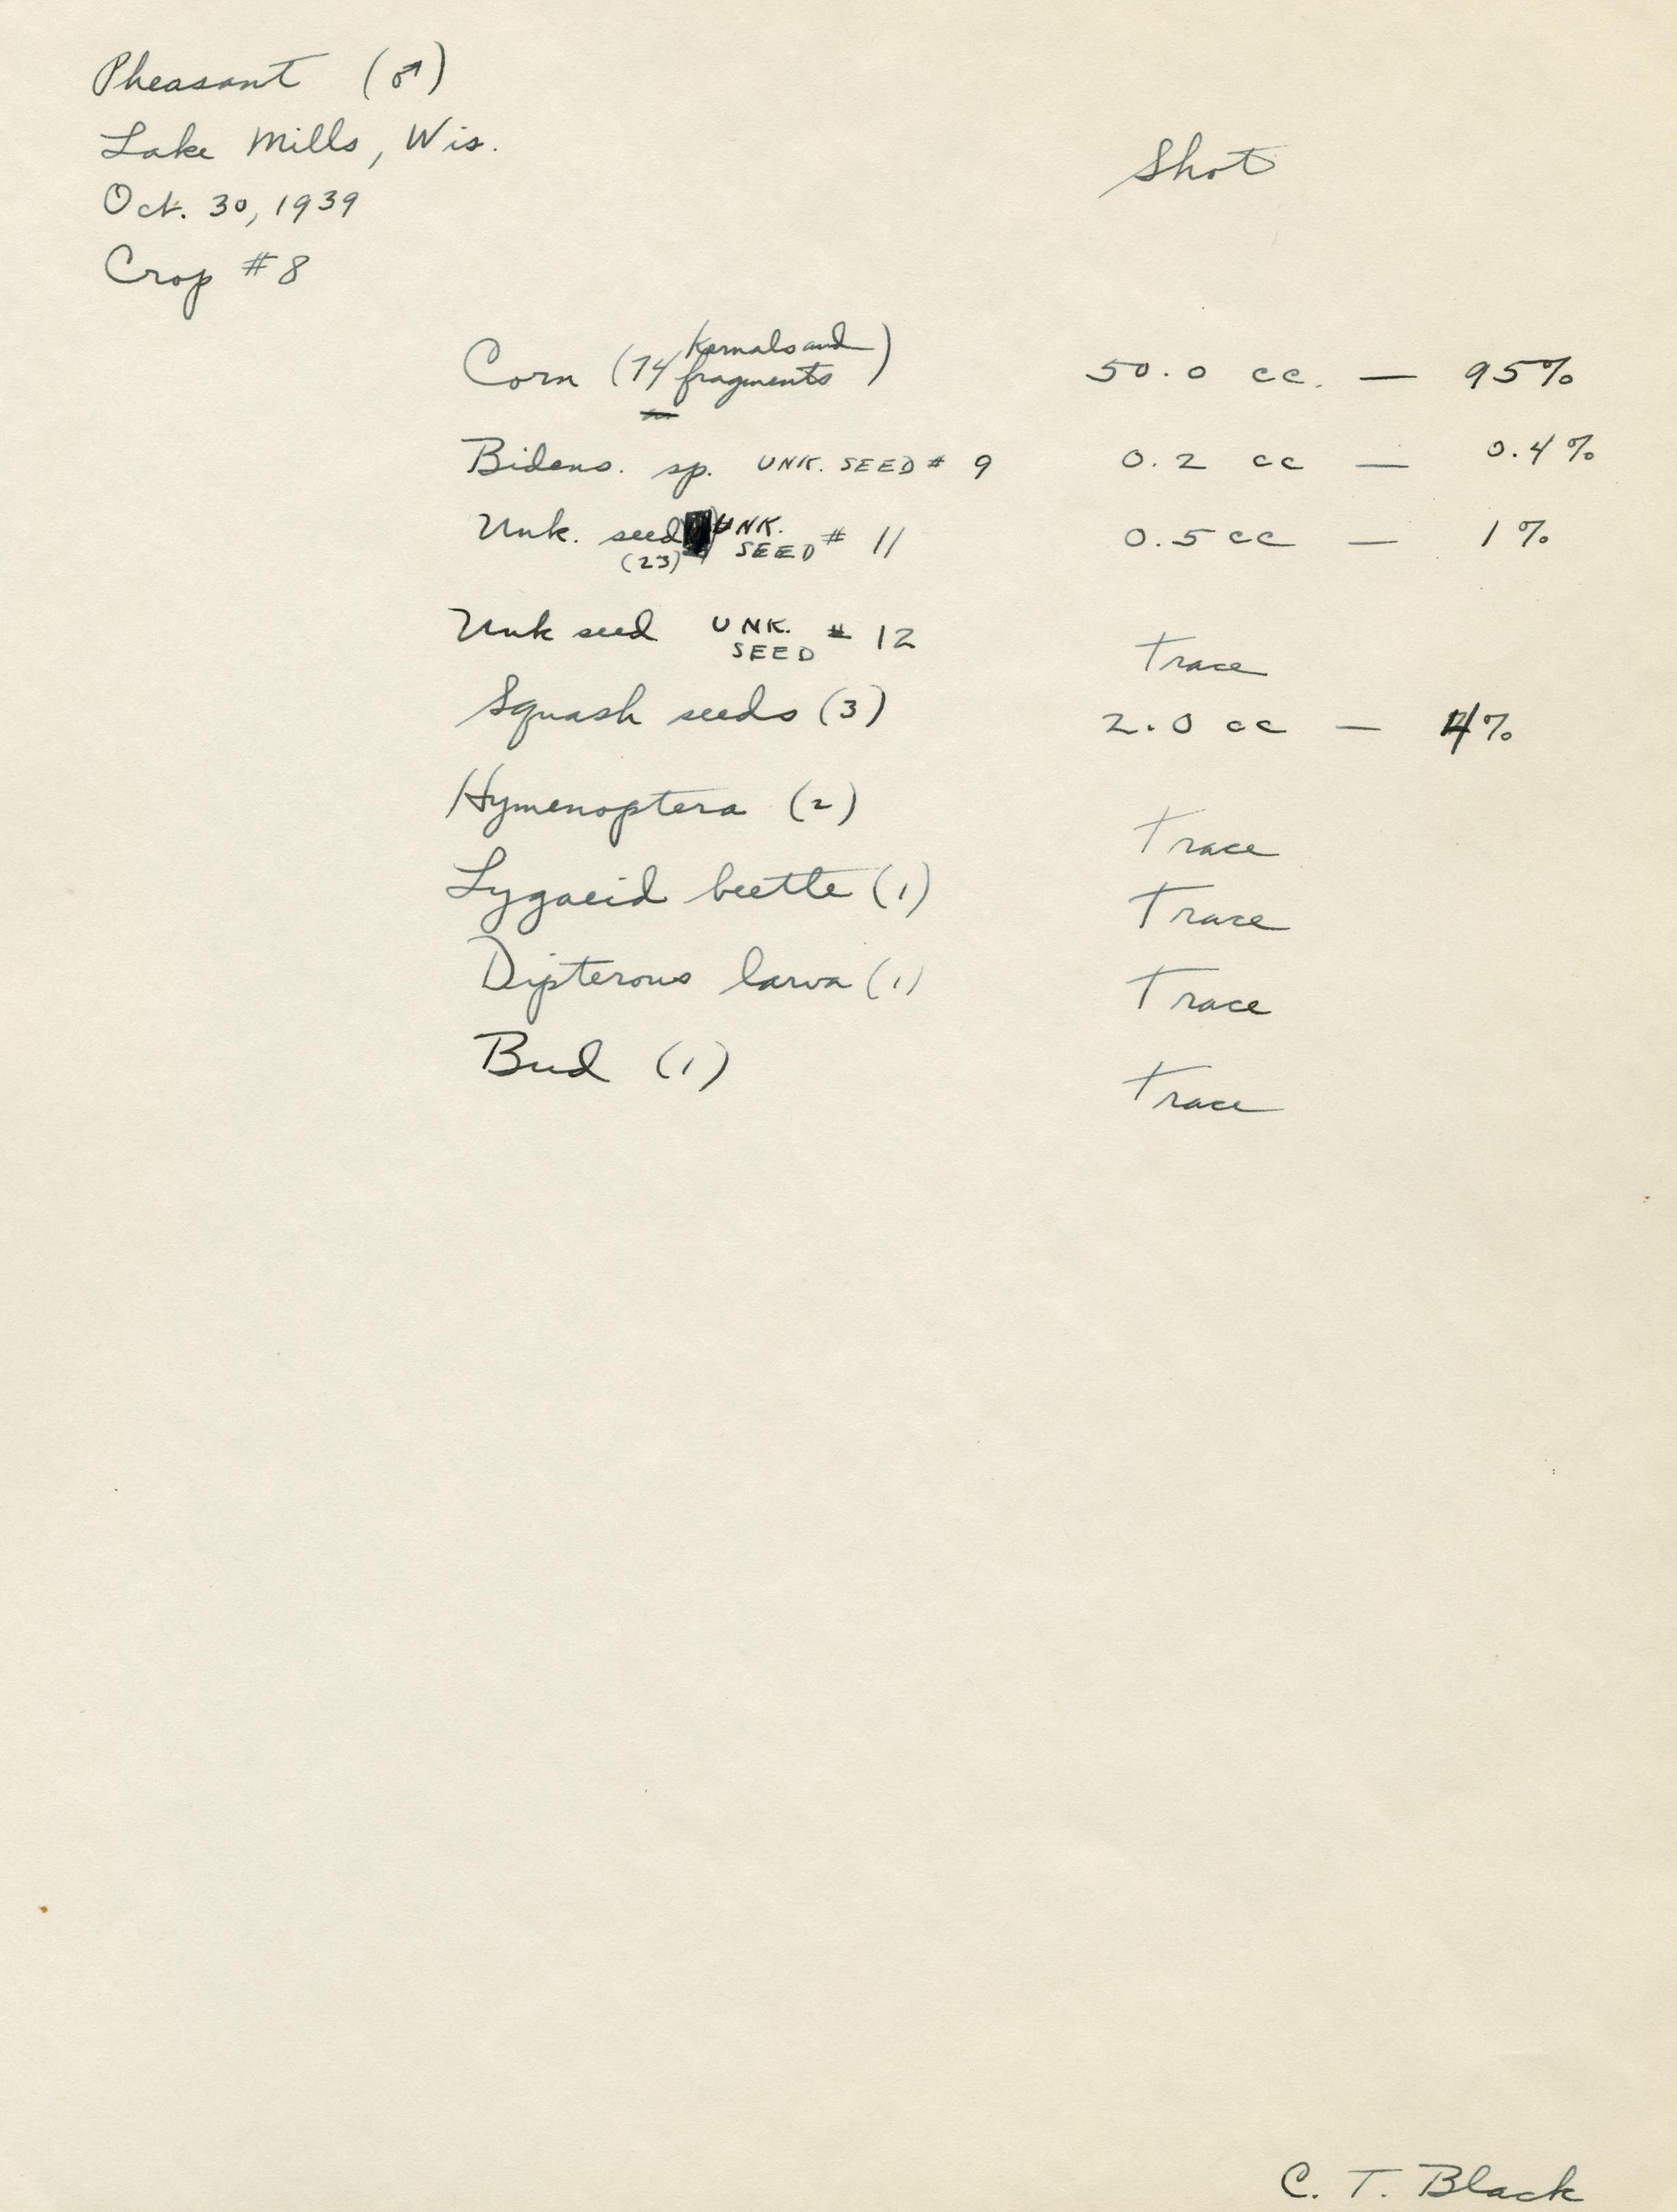 Pheasant (♂)
Lake Mills, Wis.
Shot
Oct. 30, 1939
Crop #8
Corn (74 Kernals and fragments) 50.0 cc. — 95%
Bidens. sp. UNK. SEED # 9 0.2 cc — 0.4%
Unk. seed (23) UNK. SEED # 11 0.5 cc — 1%
Unk seed UNK. SEED # 12 Trace
Squash seeds (3) 2.0 cc — 4%
Hymenoptera (2) Trace
Lygaeid beetle (1) Trace
Dipterous larva (1) Trace
Bud (1) Trace
C. T. Black